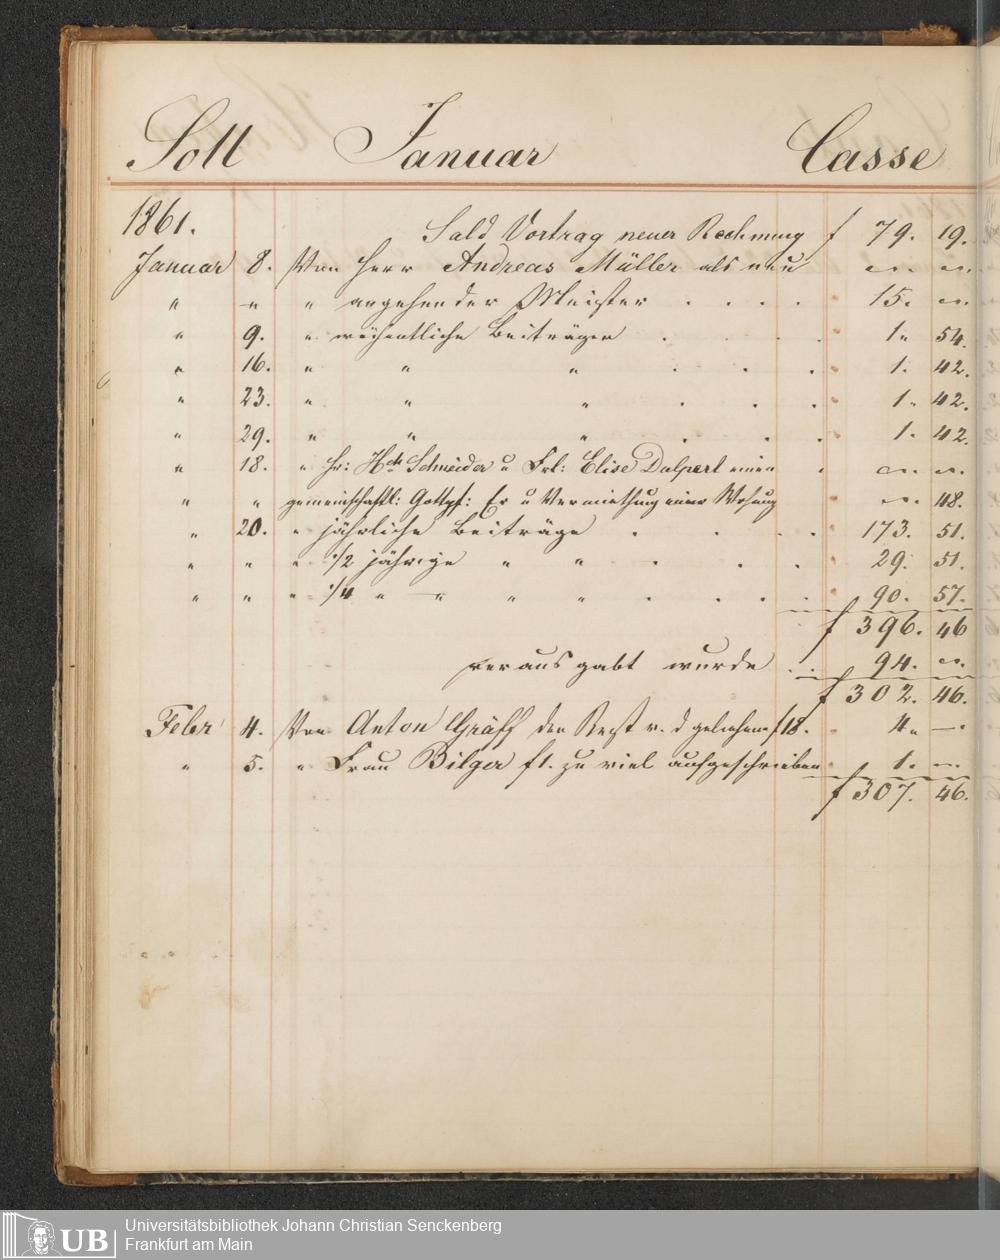 Soll Januar Casse
1861. Sald Vortrag neuer Rechnung f 79. 19.
Januar 8. Von Herr Andreas Müller als neu " "
" " " angehender Meister . . . . 15. "
" 9. " wöchentliche Beiträgen . . . . 1 " 54.
" 16. " " " . . . 1. 42.
" 23. " " " . . . 1 " 42.
" 29. " " " . . . 1. 42.
" 18. " Hr: Hch Schneider u Frl: Elise Dalpert einen . " "
" " gemeinschaftl: Er u Vermiethung einer Wohnung " 48.
" 20. " jährliche Beiträge . . . . 173. 51.
" " " 1/2 jährige " " . . . 29. 51.
" " " 1/4 " — " " " . . . . 90. 57.
f 396. 46
verausgabt wurde . . 94. "
f 302. 46.
Febr 4. Von Anton Gräff den Rest v. d geliehen f 18. 4 " —
" 5. " Frau Bilger f 1. zu viel aufgeschrieben 1. "
f 307. 46.
UB
Universitätsbibliothek Johann Christian Senckenberg
Frankfurt am Main